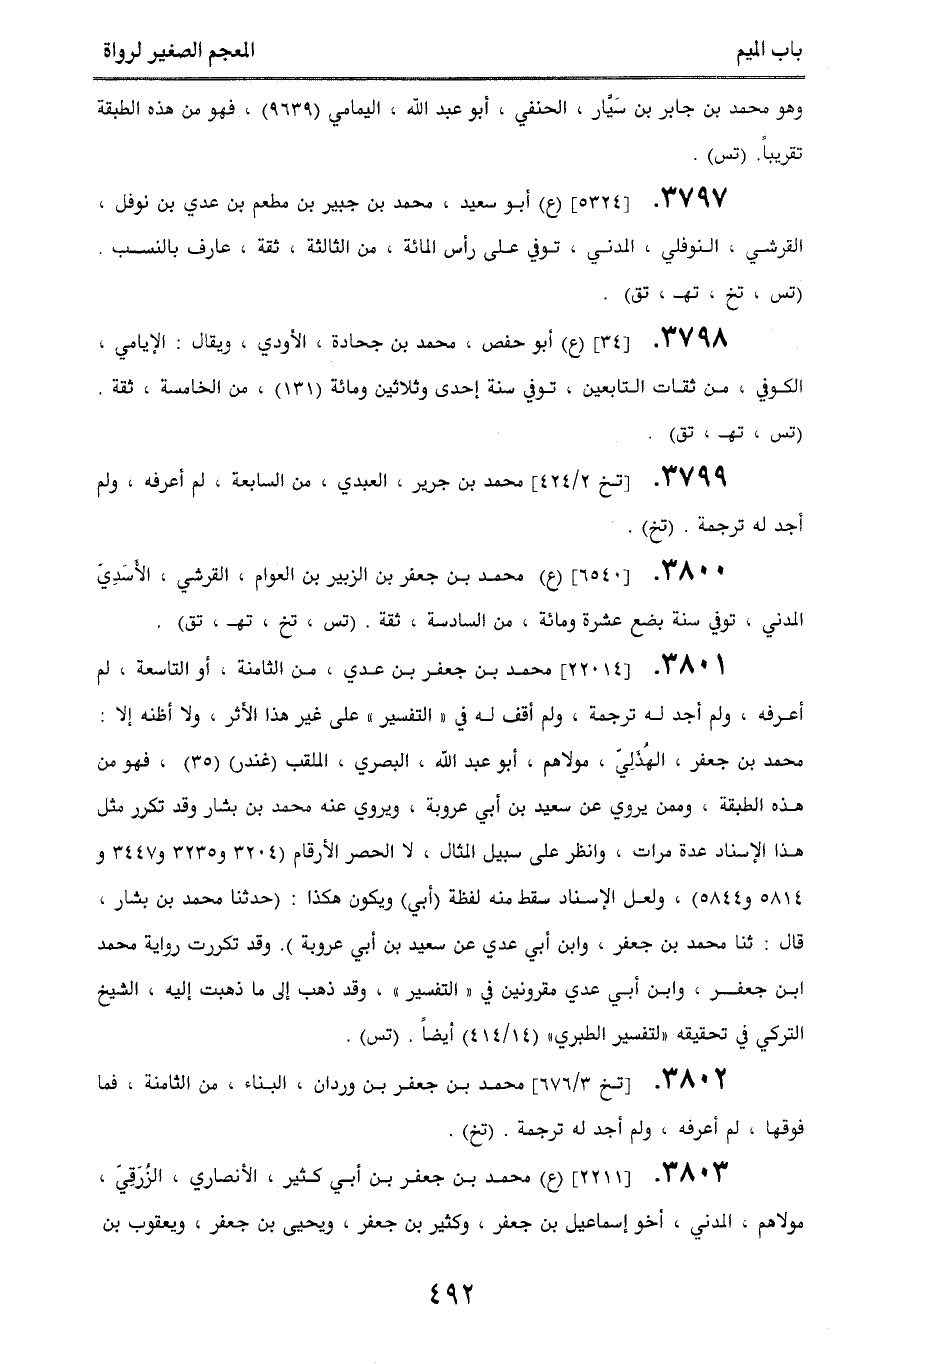 باب الميم
المعجم الصغير لرواة
وهو محمد بن جابر بن سَيَّار ، الحنفي ، أبو عبد الله ، اليمامي (٩٦٣٩) ، فهو من هذه الطبقة
تقريباً. (تس) .
٣٧٩٧. [٥٣٢٤] (ع) أبو سعيد ، محمد بن جبير بن مطعم بن عدي بن نوفل ،
القرشي ، النوفلي ، المدني ، توفي على رأس المائة ، من الثالثة ، ثقة ، عارف بالنسب .
(تس ، تخ ، تهـ ، تق) .
٣٧٩٨. [٣٤] (ع) أبو حفص ، محمد بن جحادة ، الأودي ، ويقال : الإيامي ،
الكوفي ، من ثقات التابعين ، توفي سنة إحدى وثلاثين ومائة (١٣١) ، من الخامسة ، ثقة .
(تس ، تهـ ، تق) .
٣٧٩٩. [تخ ٤٢٤/٢] محمد بن جرير ، العبدي ، من السابعة ، لم أعرفه ، ولم
أجد له ترجمة . (تخ) .
٣٨٠٠. [٦٥٤٠] (ع) محمد بن جعفر بن الزبير بن العوام ، القرشي ، الأَسَدِيّ
المدني ، توفي سنة بضع عشرة ومائة ، من السادسة ، ثقة . (تس ، تخ ، تهـ ، تق) .
٣٨٠١. [٢٢٠١٤] محمد بن جعفر بن عدي ، من الثامنة ، أو التاسعة ، لم
أعرفه ، ولم أجد له ترجمة ، ولم أقف له في « التفسير » على غير هذا الأثر ، ولا أظنه إلا :
محمد بن جعفر ، الهُذَلِيّ ، مولاهم ، أبو عبد الله ، البصري ، الملقب (غندر) (٣٥) ، فهو من
هذه الطبقة ، وممن يروي عن سعيد بن أبي عروبة ، ويروي عنه محمد بن بشار وقد تكرر مثل
هذا الإسناد عدة مرات ، وانظر على سبيل المثال ، لا الحصر الأرقام (٣٢٠٤ و٣٢٣٥ و٣٤٤٧ و
٥٨١٤ و٥٨٤٤) ، ولعل الإسناد سقط منه لفظة (أبي) ويكون هكذا : (حدثنا محمد بن بشار ،
قال : ثنا محمد بن جعفر ، وابن أبي عدي عن سعيد بن أبي عروبة ). وقد تكررت رواية محمد
ابن جعفر ، وابن أبي عدي مقرونين في « التفسير » ، وقد ذهب إلى ما ذهبت إليه ، الشيخ
التركي في تحقيقه «لتفسير الطبري» (٤١٤/١٤) أيضاً . (تس) .
٣٨٠٢. [تخ ٦٧٦/٣] محمد بن جعفر بن وردان ، البناء ، من الثامنة ، فما
فوقها ، لم أعرفه ، ولم أجد له ترجمة . (تخ) .
٣٨٠٣. [٢٢١١] (ع) محمد بن جعفر بن أبي كثير ، الأنصاري ، الزُرَقِيّ ،
مولاهم ، المدني ، أخو إسماعيل بن جعفر ، وكثير بن جعفر ، ويحيى بن جعفر ، ويعقوب بن
٤٩٢